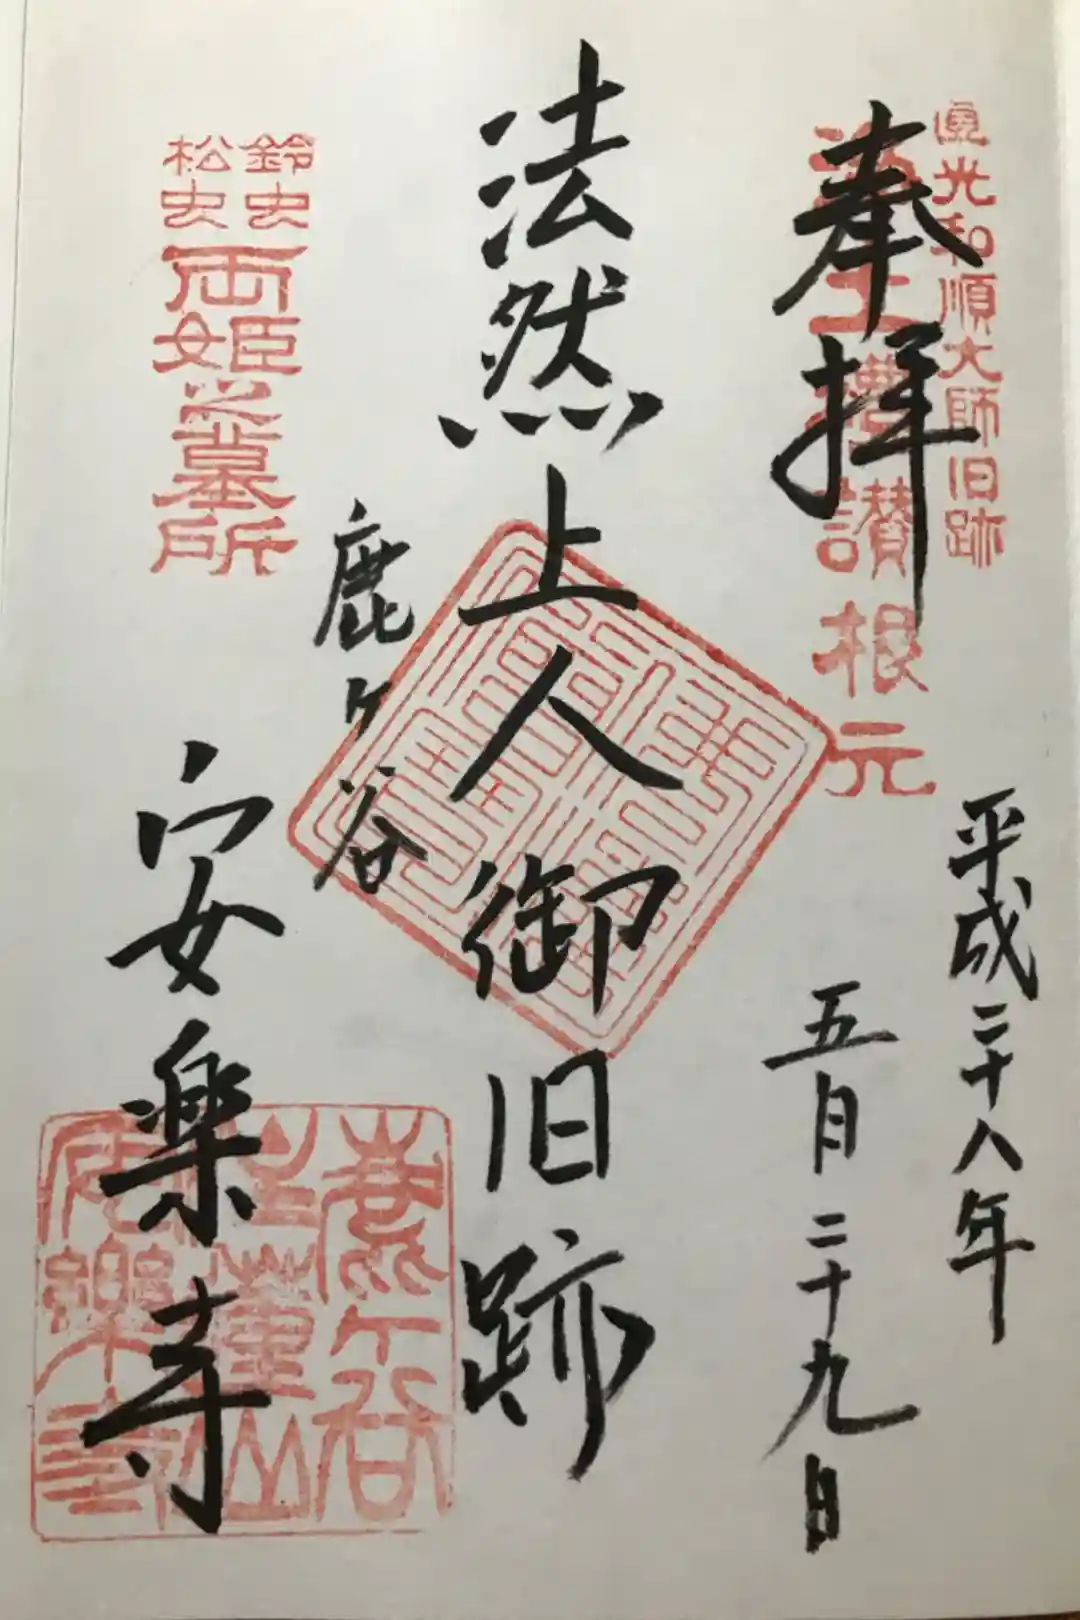 圓光和順大師旧跡
奉拝
讃根元
平成二十八年
五月二十九日
法然上人御旧跡
鹿ヶ谷
安楽寺
鈴虫
松虫
両姫之墓所
鹿ケ谷
住蓮山
安樂寺